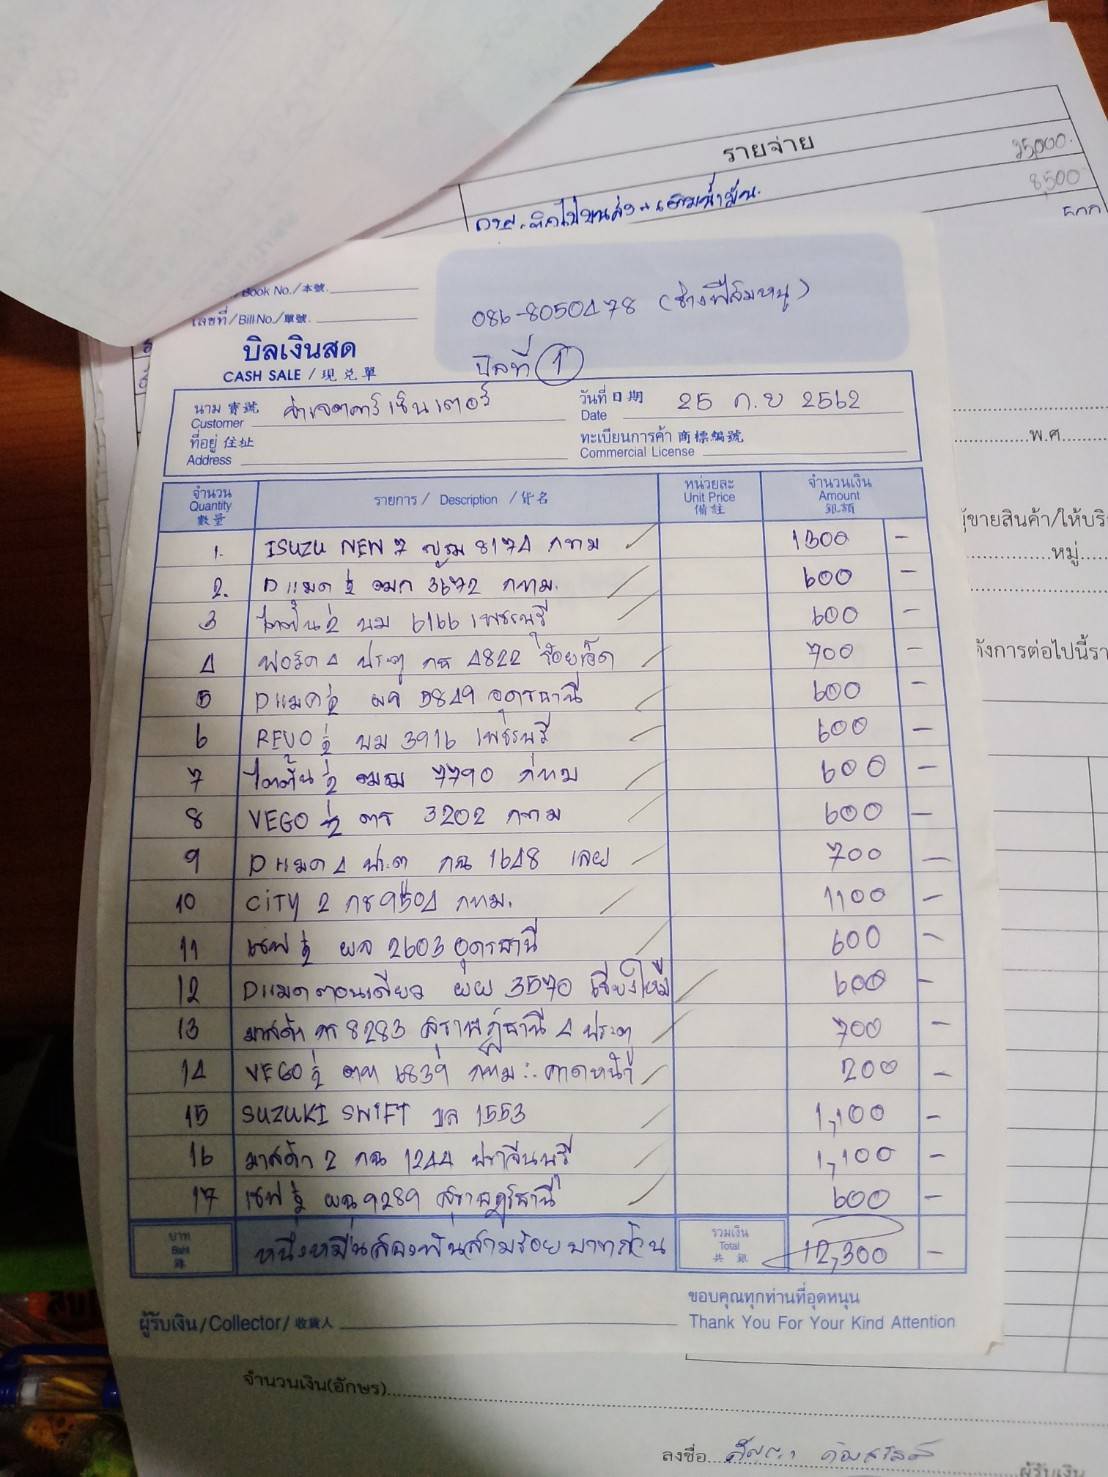 รายจ่าย
25,000.
8,500
Book No./本號.
เลขที่/Bill No./單號.
บิลเงินสด
CASH SALE / 現兌單
086-8050478 (ช่างฟิล์มหนู)
บิลที่ 1
นาม 寶號 Customer
วันที่ 日期 Date 25 ก.ย 2562
ที่อยู่ 住址 Address
ทะเบียนการค้า 商標編號 Commercial License
จำนวน Quantity 數量 รายการ / Description / 貨名 หน่วยละ Unit Price 備註 จำนวนเงิน Amount 銀額
1. ISUZU NEW 7 8174 กทม 1300 -
2. Dแมค 3672 กทม. 600 -
3 ไททั่น 2 บม 6166 เพชรบุรี 600 -
4 ฟอร์ด 4 ประตู กธ 4822 ร้อยเอ็ด 700 -
5 Dแมค ผจ 5849 อุดรธานี 600 -
6 REVO บม 3916 เพชรบุรี 600 -
7 ไททั่น 7790 กทม 600 -
8 VEGO ตร 3202 กทม 600 -
9 Dแมค 4 ปต กฉ 1648 เลย 700 -
10 CITY 2 กช 9504 กทม. 1100 -
11 เชฟ ผล 2603 อุดรธานี 600 -
12 Dแมคตอนเดียว ผผ 3570 เชียงใหม่ 600 -
13 มาสด้า กร 8283 สุราษฎร์ธานี 4 ประตู 700 -
14 VEGO ตท 6839 กทม : คาดหน้า 200 -
15 SUZUKI SWIFT ขล 1553 1,100 -
16 มาสด้า 2 กฉ 1244 ปราจีนบุรี 1,100 -
17 เชฟ ผฉ 9289 สุราษฎร์ธานี 600 -
บาท Baht หนึ่งหมื่นสองพันสามร้อยบาทถ้วน รวมเงิน Total 共銀 12,300 -
ผู้รับเงิน/Collector/收貨人
ขอบคุณทุกท่านที่อุดหนุน
Thank You For Your Kind Attention
พ.ศ.
ผู้ขายสินค้า/ให้บริ
หมู่
ดังการต่อไปนี้รา
จำนวนเงิน(อักษร)
ลงชื่อ
ผู้รับเงิน